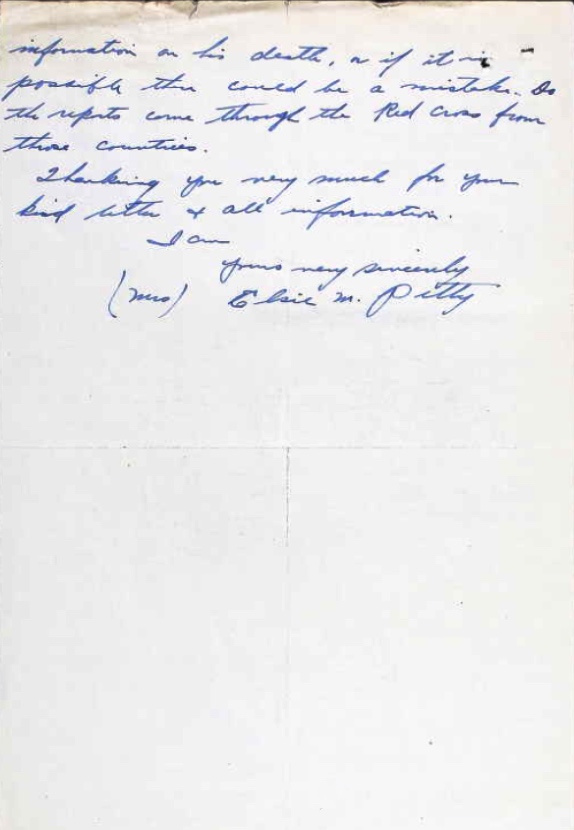 information on his death, or if it is
possible there could be a mistake. Do
the reports come through the Red Cross from
those countries.
Thanking you very much for your
kind letter & all information.
I am
yours very sincerely
(Mrs) Elsie M. Pitty